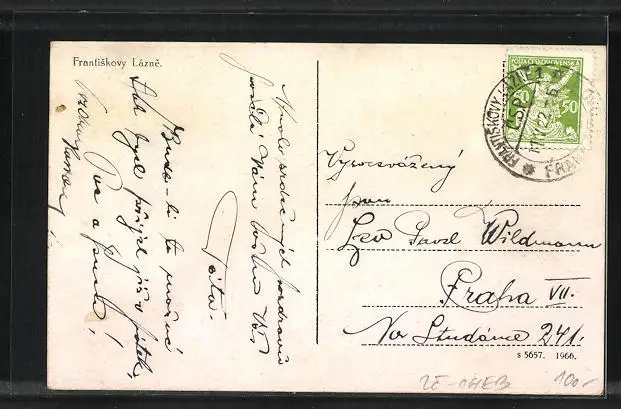 Františkovy Lázně.
Mnoho srdečných pozdravů
posílá Vám
Táta
Bude-li to možné
tak bych přijel již v pátek,
Pa a pusu!
POŠTA ČESKOSLOVENSKÁ
50
50
FRANTIŠKOVY LÁZNĚ 1
Vysocevážený
pan
Leo Pavel Wildmann
Praha VII.
Na Studánce 241.
s 5657. 1966.
ZF-CHEB
100,-